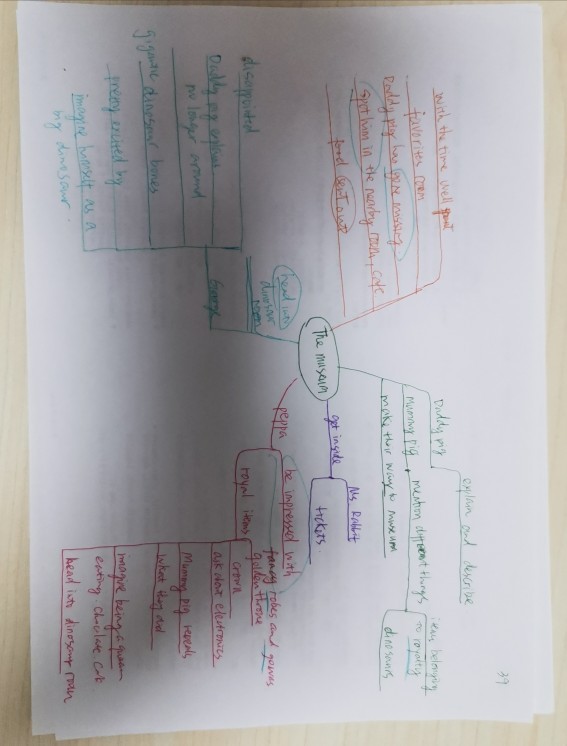 39
The museum
Daddy pig
explain and describe
Mummy pig
mention different things
items belonging
to royalty
dinosaurs
make their way to museum
get inside
Ms Rabbit
tickets
peppa
be impressed with
fancy robes and gowns
golden throne
royal items
crown
ask about electronics
Mummy pig reveals
what they did
imagine being a queen
eating chocolate cake
head into dinosaur room
head into
dinosaur
room
George
disappointed
Daddy pig explains
no longer around
gigantic dinosaur bones
pretty excited by
imagine himself as a
big dinosaur.
with the time well spent
favorites room
Daddy pig has gone missing
spot him in the nearby
cafe
food